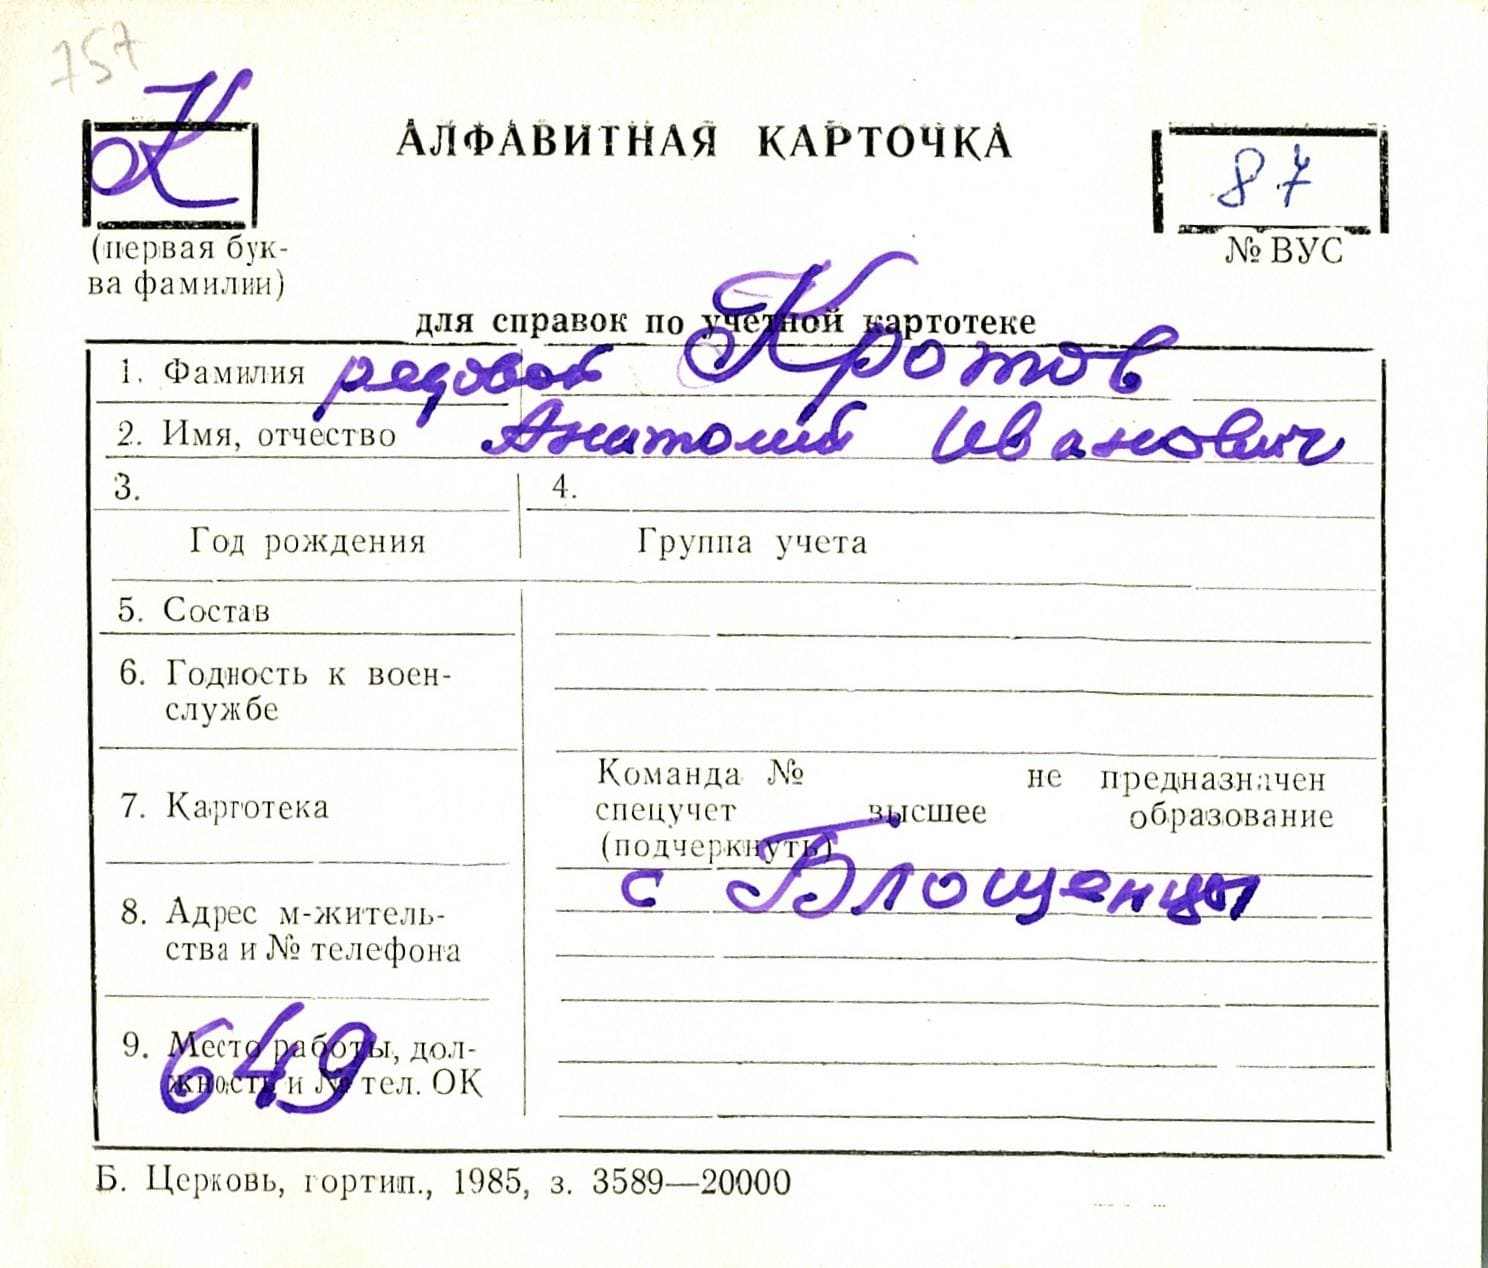 757
К
АЛФАВИТНАЯ КАРТОЧКА
87
(первая бук-
ва фамилии)
№ ВУС
для справок по учетной картотеке
1. Фамилия рядовой Кротов
2. Имя, отчество Анатолий Иванович
3.
4.
Год рождения
Группа учета
5. Состав
6. Годность к воен-
службе
7. Картотека
Команда № не предназначен
спецучет высшее образование
(подчеркнуть)
8. Адрес м-житель-
ства и № телефона
с Блощенцы
9. Место работы, дол-
жность и № тел. ОК
649
Б. Церковь, гортип., 1985, з. 3589—20000